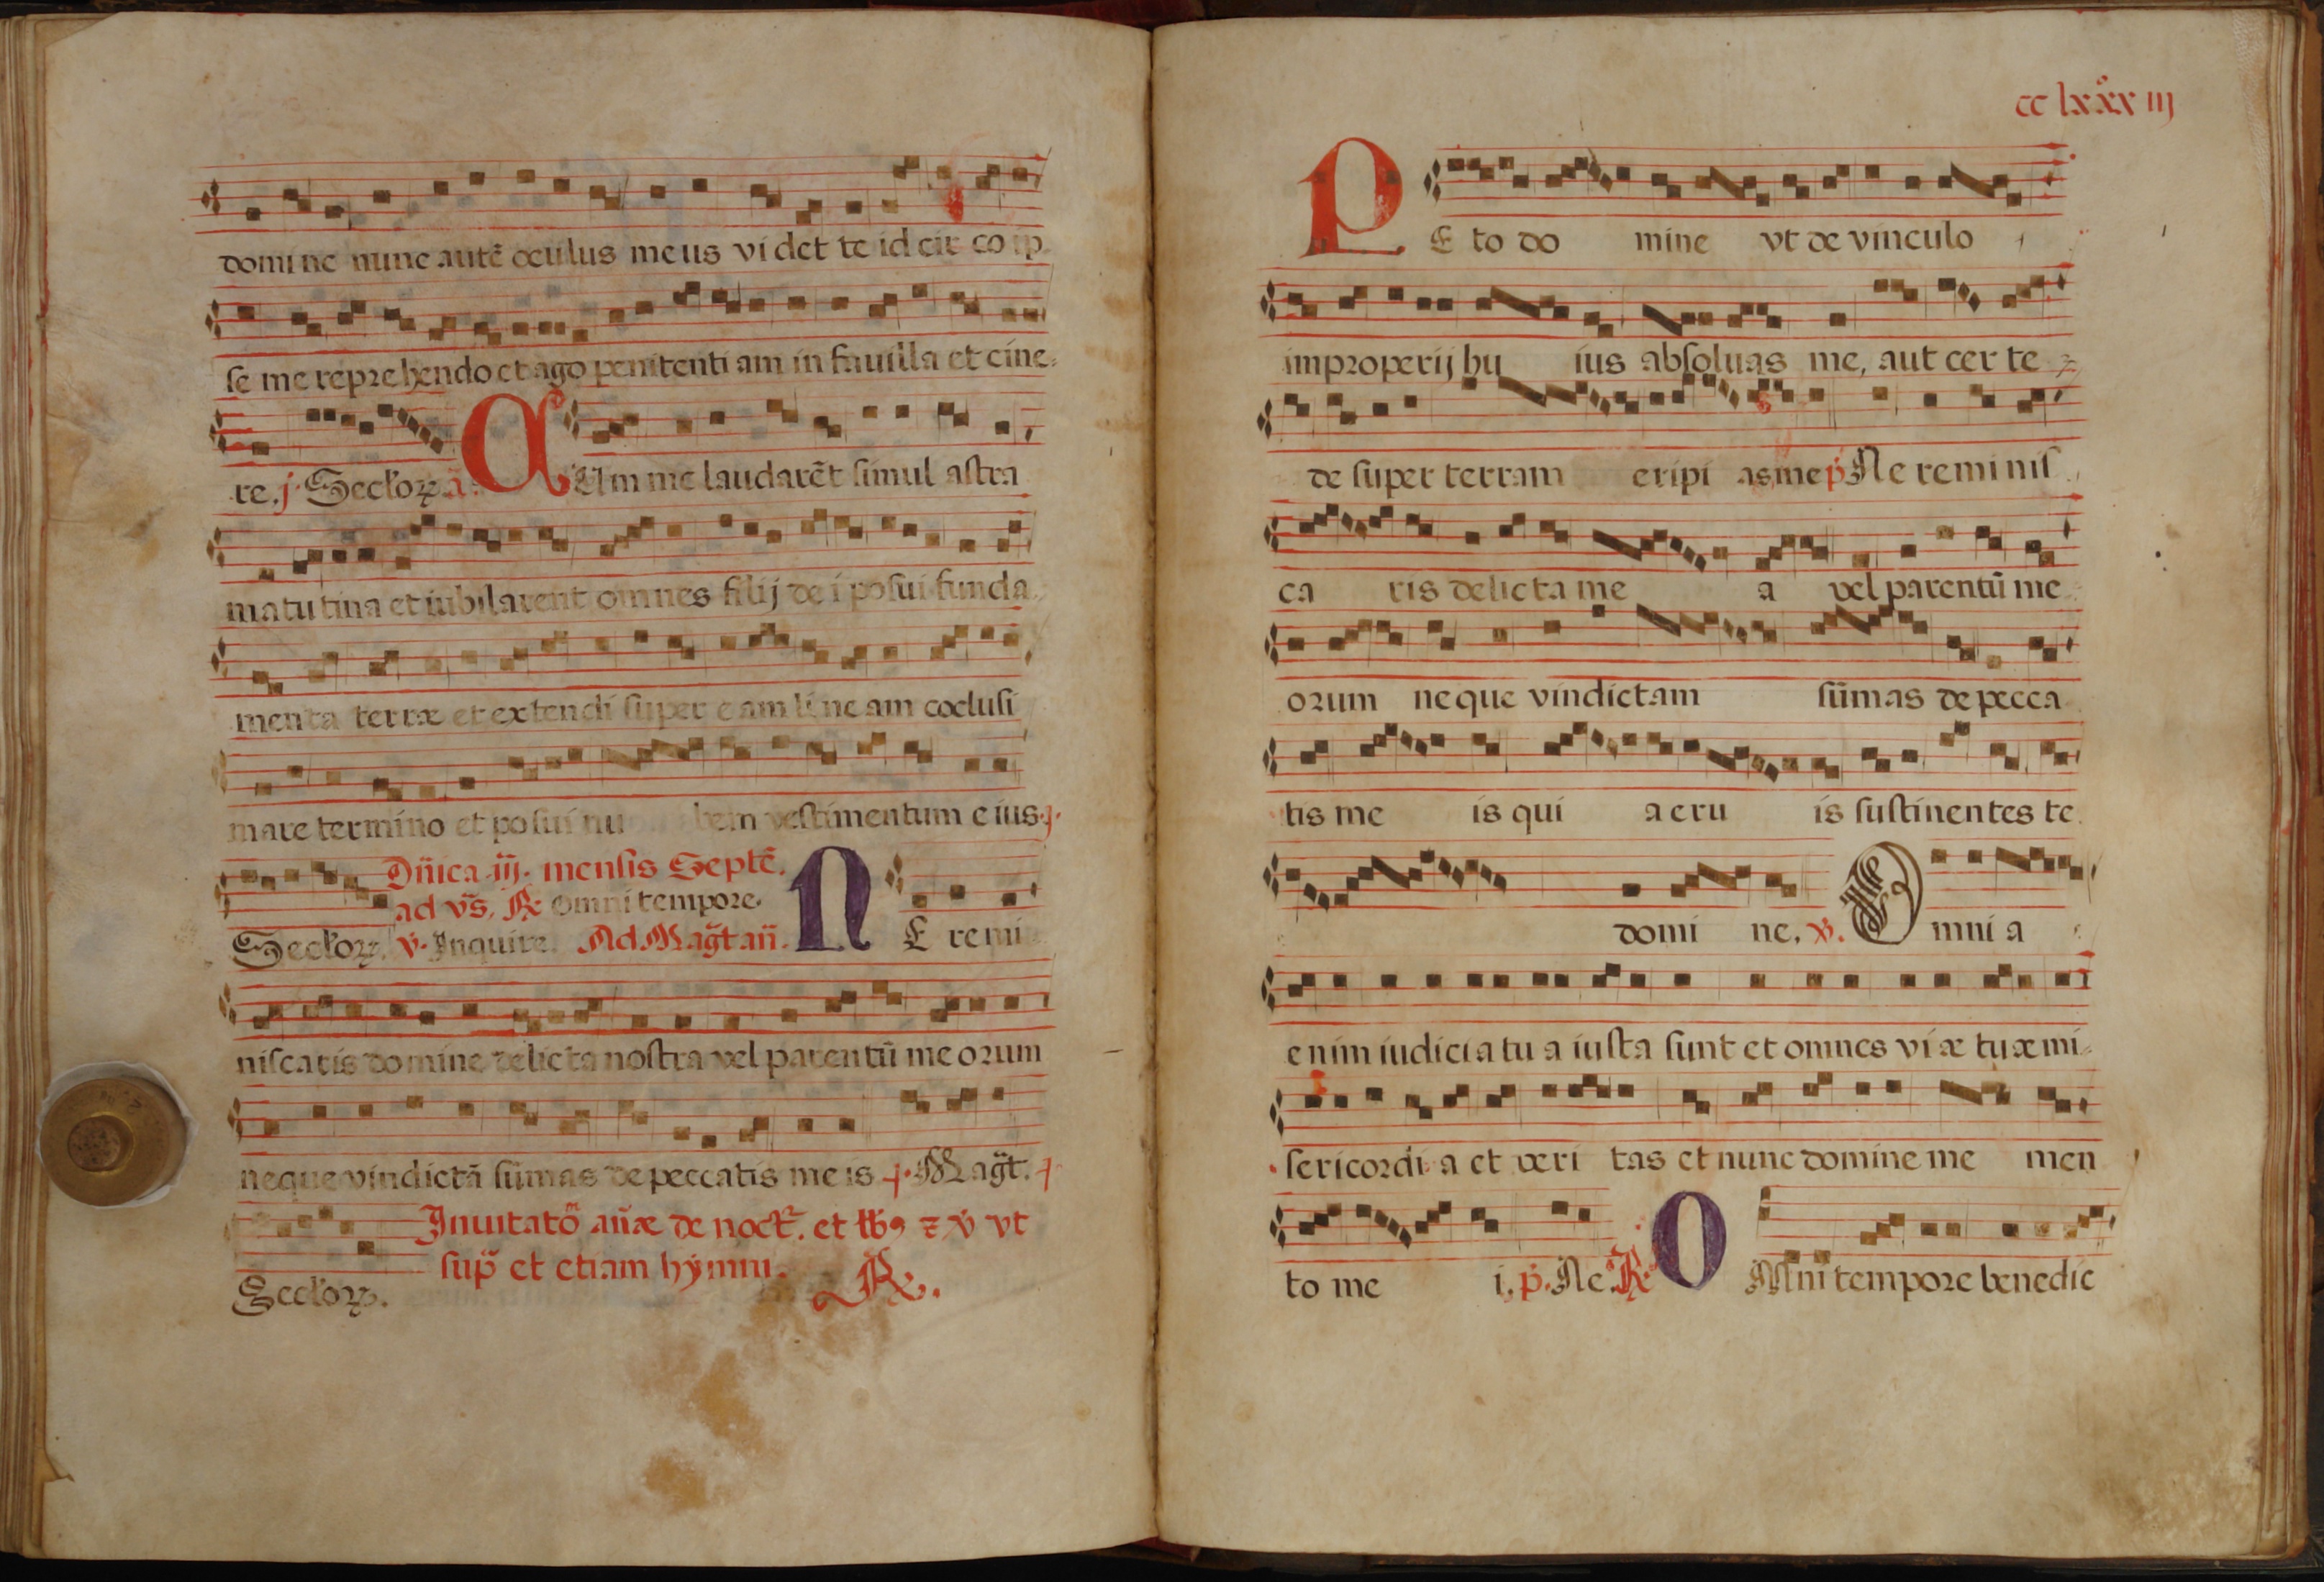 domine nunc autē oculus meus videt te idcirco ip
se me reprehendo et ago penitentiam in fauilla et cine
re. j. Seclorꝝ. a. CUm me laudarēt simul astra
matutina et iubilarent omnes filij dei posui funda
menta terræ et extendi super eam lineam coclusi
mare termino et posui nubem vestimentum eius. j.
Dn̄ica .iij. mensis Septē.
ad vs̄. ℟ Omni tempore.
Seclorꝝ. v̇. Inquire. Ad Mag̃t añ. NE remi
niscaris domine delicta nostra vel parentū meorum
neque vindictā sūmas de peccatis meis. j. Mag̃t. j
Inuitato añæ de noct. et lb̄ꝯ z v̇ vt
sup̄ et etiam hymni.
Seclorꝝ. ℟.
cc lxxx iij
PEto domine vt de vinculo
improperij huius absoluas me, aut certe
de super terram eripias me p̄ Ne reminis
caris delicta mea vel parentū me
orum neque vindictam sūmas de pecca
tis meis qui aeruis sustinentes te
domine. v̇. Omnia
enim iudicia tua iusta sunt et omnes viæ tuæ mi
sericordia et veritas et nunc domine memen
to mei. p̄. Ne. ℟. OMni tempore benedic